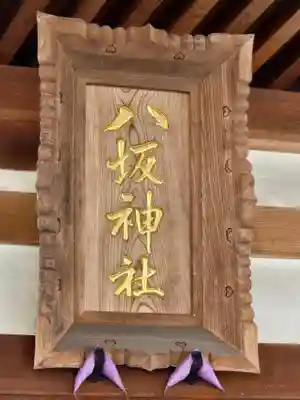 八坂神社